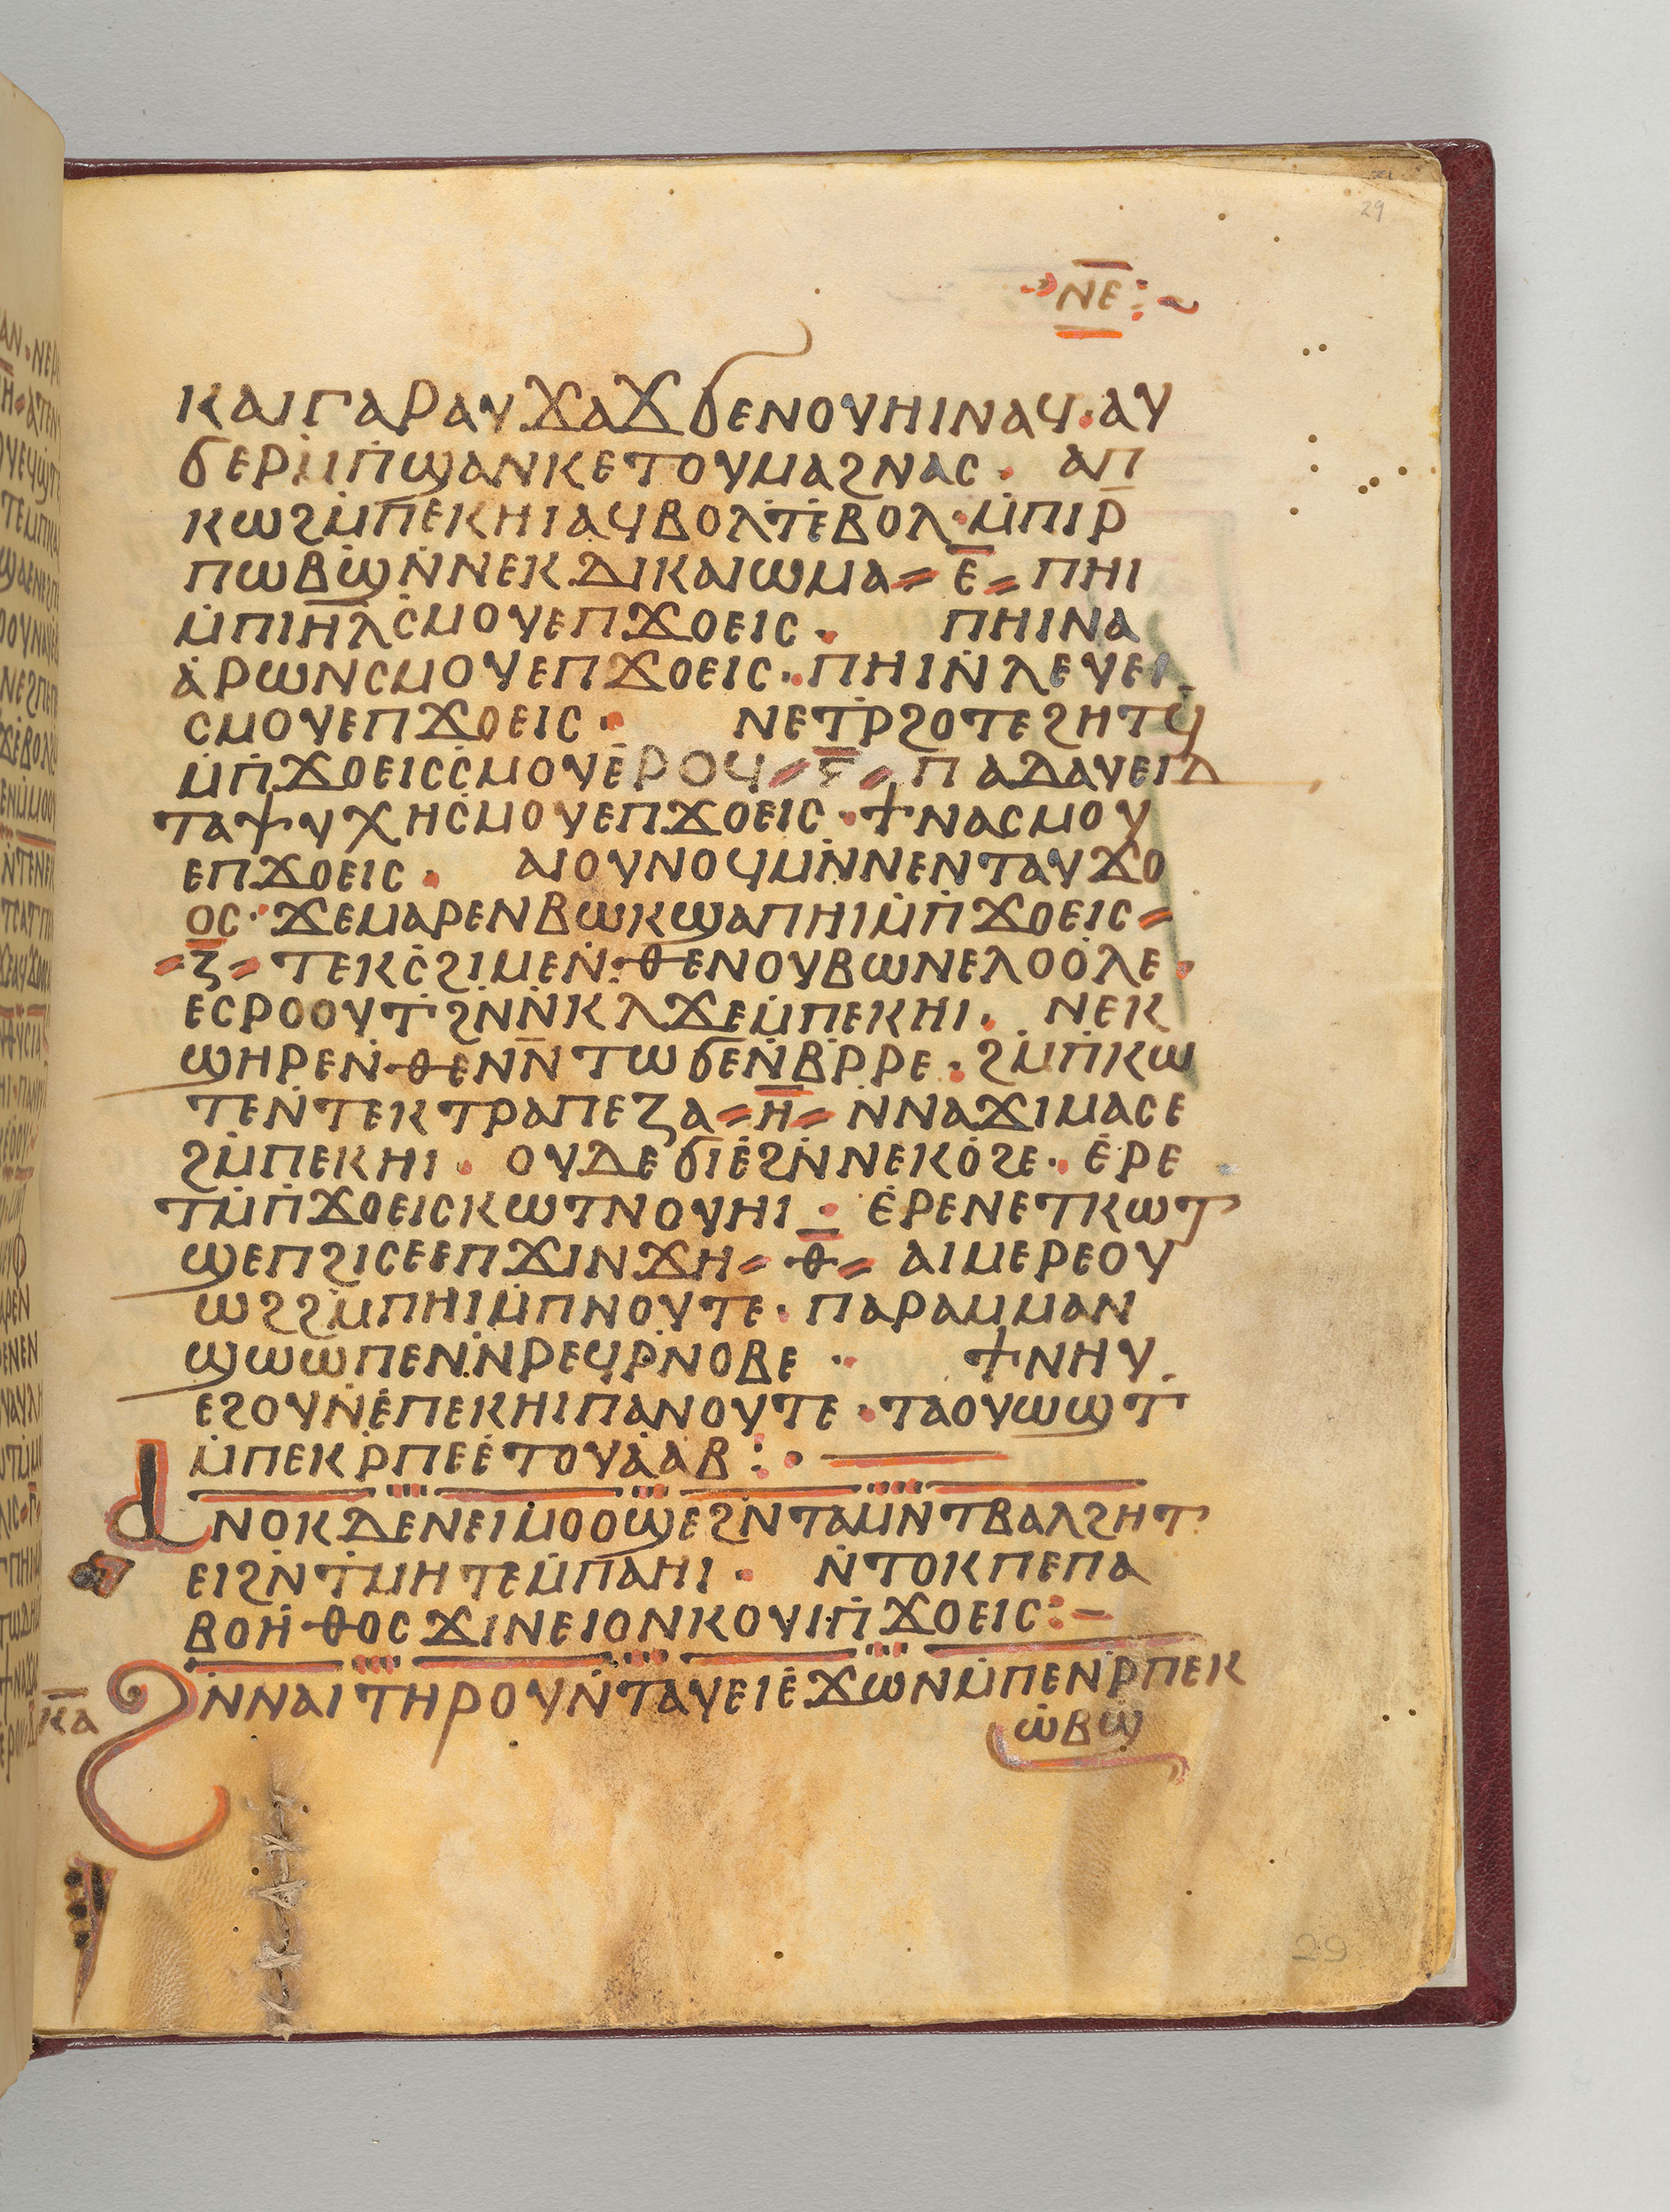 29
ⲛⲉ
ⲕⲁⲓⲅⲁⲣⲁⲩϫⲁϫϭⲉⲛⲟⲩⲏⲓⲛⲁϥ·ⲁⲩ
ϭⲉⲣⲙ̇ⲡ̇ϣⲁⲛⲕⲉⲧⲟⲩⲙⲁϩⲛⲁⲥ· ⲁⲡ
ⲕⲱϩⲙ̇ⲡⲉⲕⲏⲓⲁϥⲃⲟⲗⲧ̇ⲉ̇ⲃⲟⲗ·ⲙ̇ⲡⲓⲣ̄
ⲡⲱⲃ̇ϣⲛ̇ⲛⲉⲕⲇⲓⲕⲁⲓⲱⲙⲁ⸗ⲉ̄⸗ⲡⲏⲓ
ⲙ̇ⲡⲓⲏ̄ⲗⲥ̇ⲙⲟⲩⲉⲡϫⲟⲉⲓⲥ· ⲡⲏⲓⲛⲁ
ⲁ̇ⲣⲱⲛⲥⲙⲟⲩⲉⲡϫⲟⲉⲓⲥ·ⲡⲏⲓⲛ̇ⲗⲉⲩⲉⲓ
ⲥⲙⲟⲩⲉⲡϫⲟⲉⲓⲥ· ⲛⲉⲧⲣ̇ϩⲟⲧⲉϩⲏⲧϥ̇
ⲙ̇ⲡ̇ϫⲟⲉⲓⲥⲥ̇ⲙⲟⲩⲉ̇ⲣⲟϥ⸗ⲋ̄⸗ⲡⲁⲇⲁⲩⲉⲓⲇ
ⲧⲁⲯⲩⲭⲏⲥ̇ⲙⲟⲩⲉⲡϫⲟⲉⲓⲥ·ϯⲛⲁⲥⲙⲟⲩ
ⲉⲡϫⲟⲉⲓⲥ· ⲁⲓⲟⲩⲛⲟϥⲙ̇ⲛ̇ⲛⲉⲛⲧⲁⲩϫⲟ
ⲟⲥ·ϫⲉⲙⲁⲣⲉⲛⲃⲱⲕϣⲁⲡⲏⲓⲙ̇ⲡ̇ϫⲟⲉⲓⲥ⸗
⸗ⲍ̄⸗ⲧⲉⲕⲥ̇ϩⲓⲙⲉⲛ̇·ⲑⲉⲛⲟⲩⲃⲱⲛⲉⲗⲟⲟ̇ⲗⲉ·
ⲉⲥⲣⲟⲟⲩⲧ̇ϩⲛ̇ⲛ̇ⲕⲗϫⲉⲙ̇ⲡⲉⲕⲏⲓ· ⲛⲉⲕ
ϣⲏⲣⲉⲛ̇·ⲑⲉⲛⲛ̄ⲧⲱϭⲉⲛ̇ⲃ̇ⲣ̇ⲣⲉ·ϩⲙ̇ⲡ̇ⲕⲱ
ⲧⲉⲛ̇ⲧⲉⲕⲧⲣⲁⲡⲉⲍⲁ⸗ⲏ̄⸗ⲛ̇ⲛⲁϫⲓⲙⲁⲥⲉ
ϩⲙ̇ⲡⲉⲕⲏⲓ· ⲟⲩⲇⲉϭⲓⲉ̇ϩⲛ̇ⲛⲉⲕⲟ̇ϩⲉ·ⲉ̇ⲣⲉ
ⲧⲙ̇ⲡ̇ϫⲟⲉⲓⲥⲕⲱⲧⲛⲟⲩⲏⲓ· ⲉ̇ⲣⲉⲛⲉⲧⲕⲱⲧ
ϣⲉⲡϩⲓⲥⲉⲉⲡϫⲓⲛϫⲏ⸗ⲑ̄⸗ⲁⲓⲙⲉⲣⲉⲟⲩ
ⲱϩϩⲙ̇ⲡⲏⲓⲙ̇ⲡⲛⲟⲩⲧⲉ·ⲡⲁⲣⲁⲙⲙⲁⲛ
ϣⲱⲱⲡⲉⲛ̇ⲛ̇ⲣⲉϥⲣ̇ⲛⲟⲃⲉ· ϯⲛⲏⲩ
ⲉϩⲟⲩⲛ̇ⲉ̇ⲡⲉⲕⲏⲓⲡⲁⲛⲟⲩⲧⲉ·ⲧⲁⲟⲩⲱϣⲧ
ⲙ̇ⲡⲉⲕⲣ̇ⲡⲉⲉ̇ⲧⲟⲩⲁ̇ⲁⲃ:·
ⲁⲛⲟⲕⲇⲉⲛⲉⲓⲙⲟⲟϣⲉϩⲛ̇ⲧⲁⲙⲛ̇ⲧⲃⲁⲗϩⲏⲧ
ⲉⲓϩⲛ̇ⲧ̇ⲙⲏⲧⲉⲙ̇ⲡⲁⲏⲓ· ⲛ̇ⲧⲟⲕⲡⲉⲡⲁ
ⲃⲟⲏ̇ⲑⲟⲥϫⲓⲛⲉⲓⲟⲛⲕⲟⲩⲓⲡ̇ϫⲟⲉⲓⲥ:–
ⲕ̄ⲁ̄ ϩⲛ̇ⲛⲁⲓⲧⲏⲣⲟⲩⲛ̇ⲧⲁⲩⲉⲓⲉ̇ϫⲱⲛⲙ̇ⲡⲉⲛⲣ̇ⲡⲉⲕ
ⲱ̇ⲃϣ
29